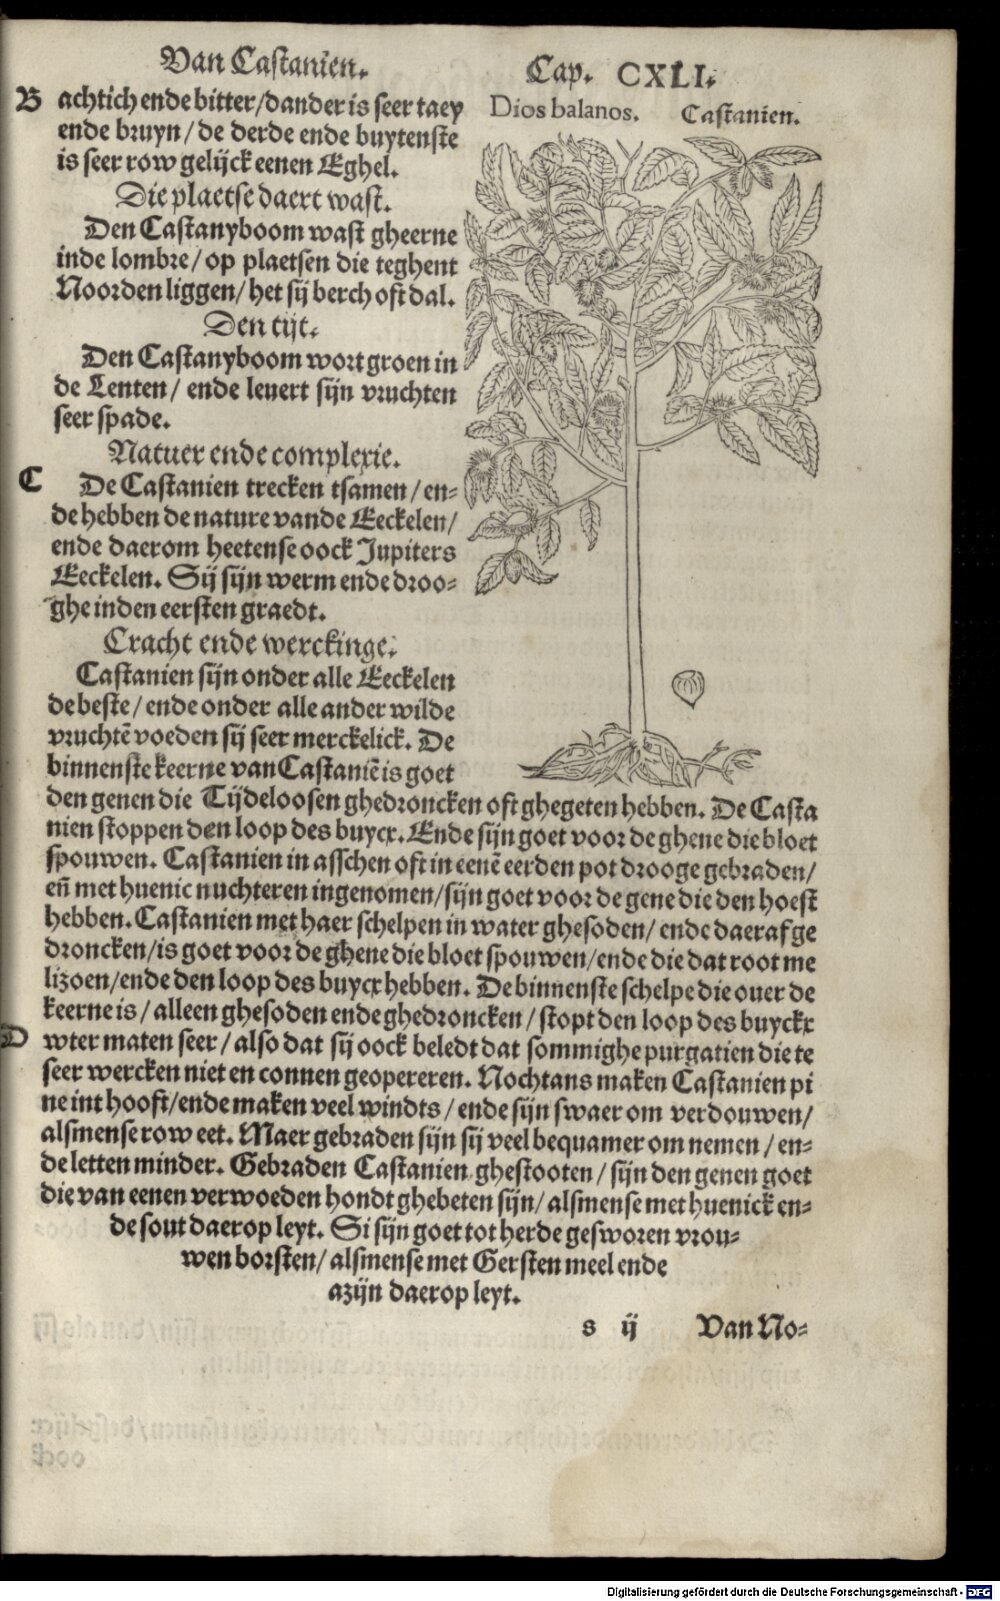 Van Castanien. Cap. CXLI.
Dios balanos. Castanien.
B achtich ende bitter/dander is seer taey
ende bruyn/de derde ende buytenste
is seer row gelijck eenen Eghel.
Die plaetse daert wast.
Den Castanyboom wast gheerne
inde lombre/op plaetsen die teghent
Noorden liggen/het sij berch oft dal.
Den tijt.
Den Castanyboom wort groen in
de Lenten/ ende levert sijn vruchten
seer spade.
Natuer ende complexie.
C De Castanien trecken tsamen/en-
de hebben de nature vande Eeckelen/
ende daerom heetense oock Jupiters
Eeckelen. Sij sijn werm ende droo-
ghe inden eersten graedt.
Cracht ende werckinge.
Castanien sijn onder alle Eeckelen
de beste/ende onder alle ander wilde
vruchtē voeden sij seer merckelick. De
binnenste keerne van Castaniē is goet
den genen die Tijdeloosen ghedroncken oft ghegeten hebben. De Casta
nien stoppen den loop des buycx. Ende sijn goet voor de ghene die bloet
spouwen. Castanien in asschen oft in eenē eerden pot drooge gebraden/
eñ met huenic nuchteren ingenomen/sijn goet voor de gene die den hoest
hebben. Castanien met haer schelpen in water ghesoden/ ende daer af ge
droncken/is goet voor de ghene die bloet spouwen/ende die dat root me
lizoen/ende den loop des buycx hebben. De binnenste schelpe die over de
keerne is/alleen ghesoden ende ghedroncken/stopt den loop des buyckx
D wter maten seer/also dat sij oock beledt dat sommighe purgatien die te
seer wercken niet en connen geopereren. Nochtans maken Castanien pi
ne int hooft/ende maken veel windts/ende sijn swaer om verdouwen/
alsmense row eet. Maer gebraden sijn sij veel bequamer om nemen/en-
de letten minder. Gebraden Castanien ghestooten/sijn den genen goet
die van eenen verwoeden hondt ghebeten sijn/alsmense met huenick en-
de sout daer op leyt. Si sijn goet tot herde gesworen vrou-
wen borsten/alsmense met Gersten meel ende
azijn daer op leyt.
s ij Van No-
Digitalisierung gefördert durch die Deutsche Forschungsgemeinschaft - DFG